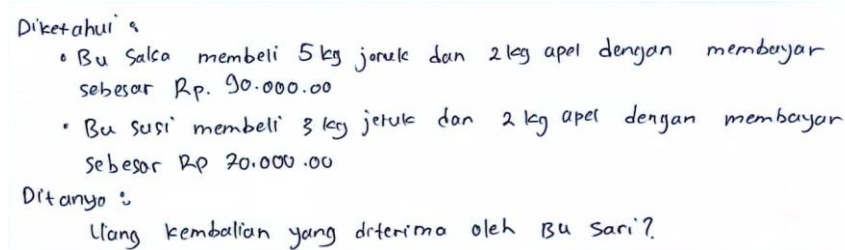 Diketahui :
• Bu Salsa membeli 5 kg jeruk dan 2 kg apel dengan membayar
sebesar Rp. 90.000.00
• Bu Susi membeli 3 kg jeruk dan 2 kg apel dengan membayar
sebesar Rp 70.000.00
Ditanya :
Uang kembalian yang diterima oleh Bu Sari?